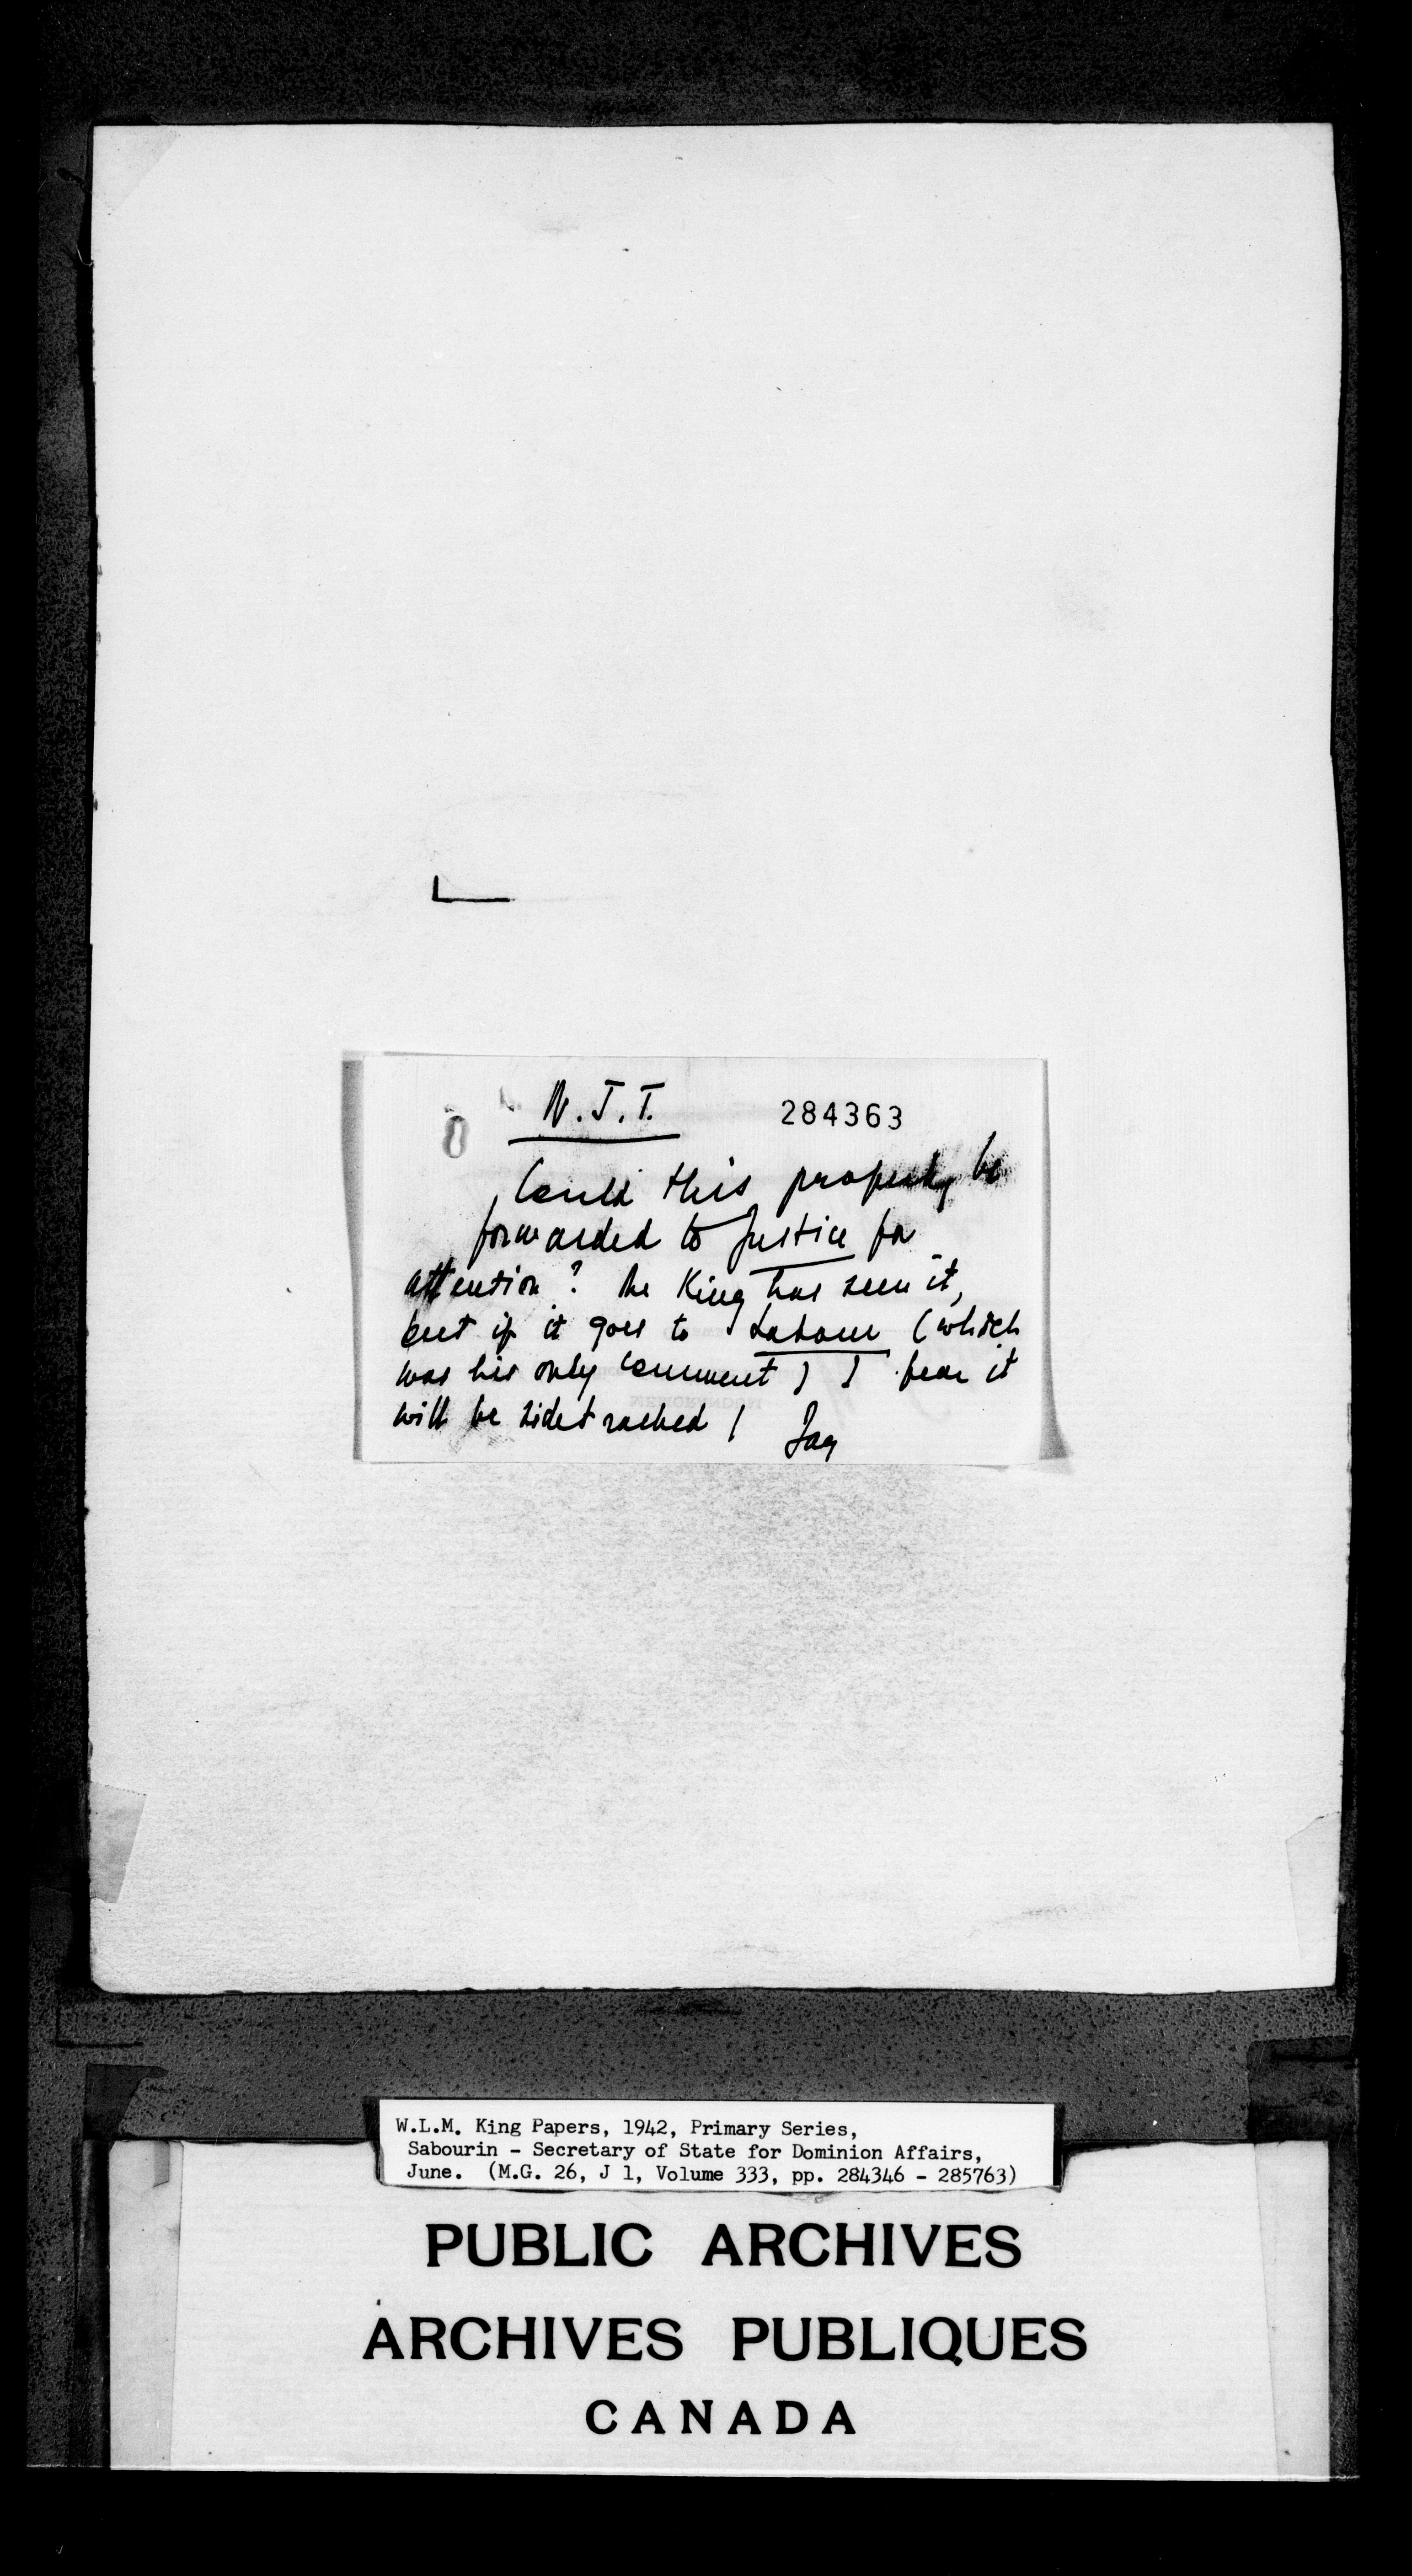 N.J.T.
284363
Could this properly be
forwarded to Justice for
attention? Mr King has seen it,
but if it goes to Labour (which
was his only comment) I fear it
will be sidetracked!
W.L.M. King Papers, 1942, Primary Series,
Sabourin - Secretary of State for Dominion Affairs,
June. (M.G. 26, J 1, Volume 333, pp. 284346 - 285763)
PUBLIC ARCHIVES
ARCHIVES PUBLIQUES
CANADA